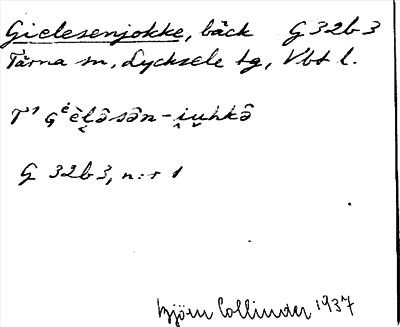 Gielesenjokke, bäck G 32b3
Tärna sn, Lycksele tg, Vbt l.
T¹ G͔ᵉ̀èl̯ə̂sə̂n-i̯u̯hkə̂
G 32b3, n:r 1
Björn Collinder 1937